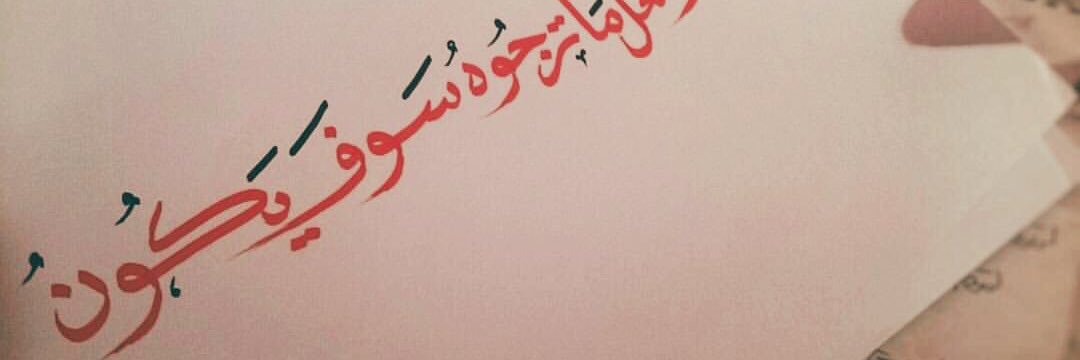 لعل مَا ترجُوهُ سَوفَ يَكُونُ